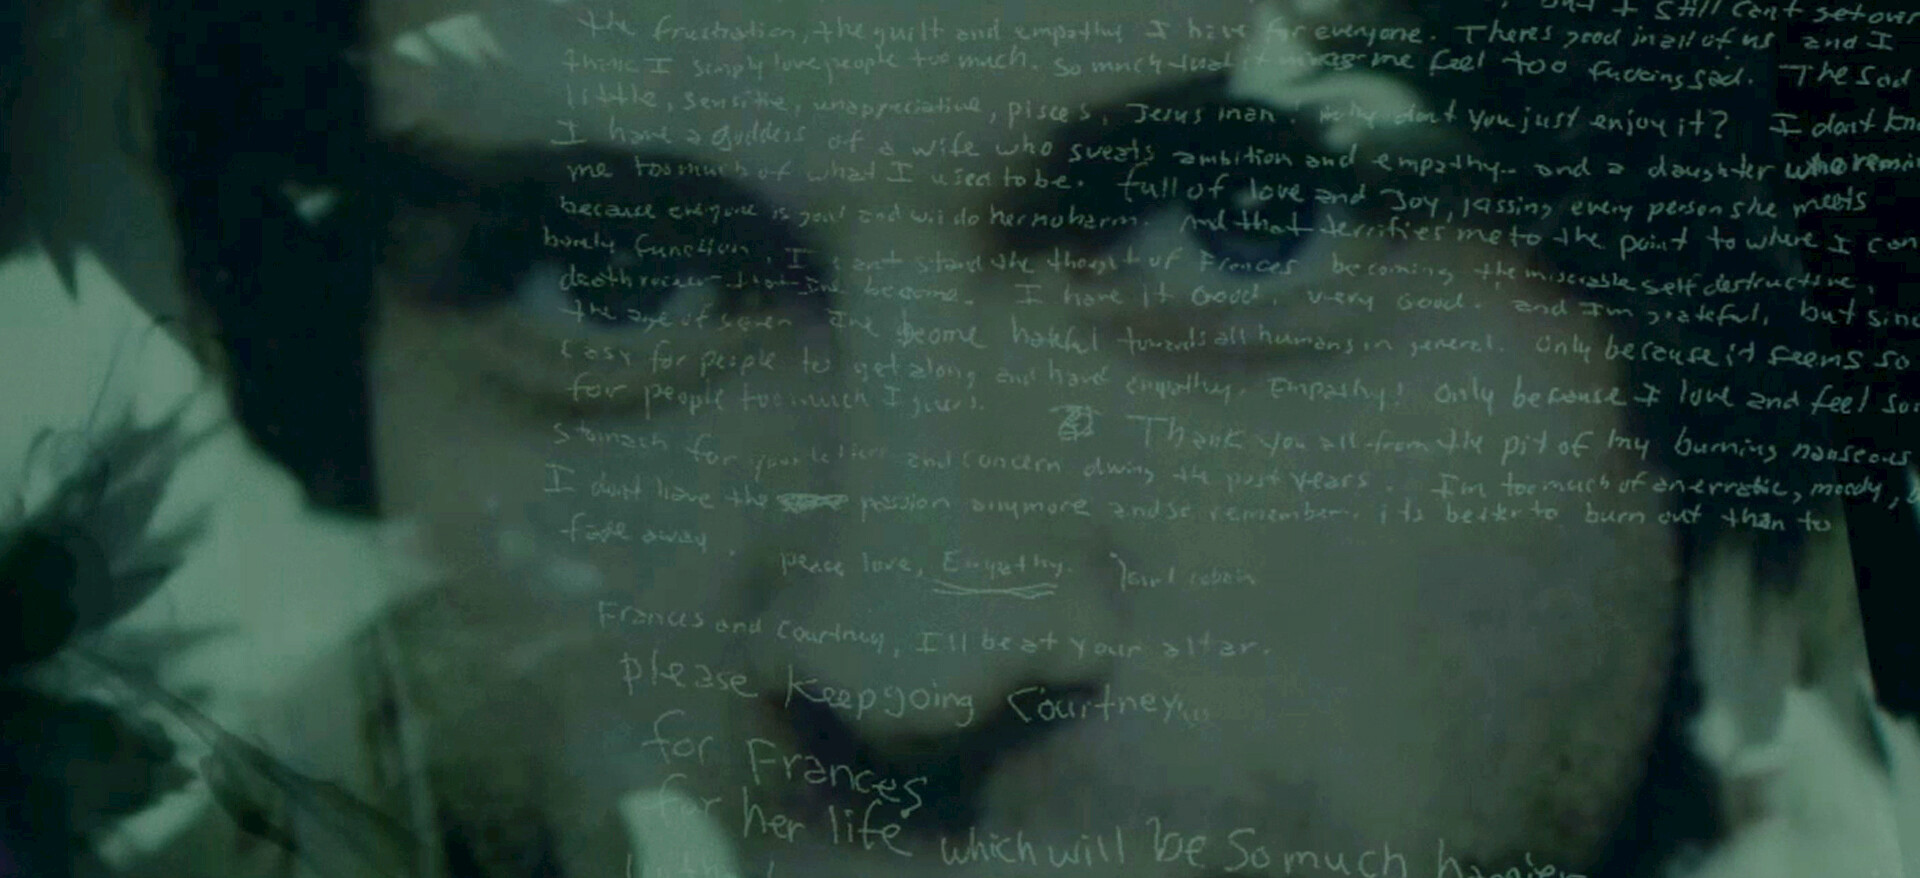 but I still can't get over
the frustration, the guilt and empathy I have for everyone. Theres good in all of us and I
think I simply love people too much. so much that it makes me feel too fucking sad. The sad
little, sensitive, unappreciative, pisces, Jesus man! why dont you just enjoy it? I dont kno
I have a goddess of a wife who sweats ambition and empathy.. and a daughter who remin
me too much of what I used to be. full of love and Joy, kissing every person she meets
because everyone is good and will do her no harm. And that terrifies me to the point to where I can
barely function. I cant stand the thought of Frances becoming the miserable self destructive,
death rocker that Ive become. I have it Good. very Good. and Im grateful, but sinc
the age of seven Ive become hateful towards all humans in general. Only because it seems so
easy for people to get along and have empathy. Empathy! Only because I love and feel sor
for people too much I guess. Thank you all from the pit of my burning nauseous
stomach for your letters and concern during the past years. Im too much of an erratic, moody,
I dont have the passion anymore and so remember. its better to burn out than to
fade away.
peace love, Empathy. Kurt Cobain
Frances and Courtney, I'll be at your altar.
please Keep going Courtney,
for Frances
for her life which will be so much happier